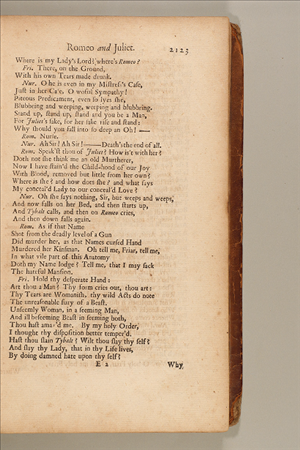 Romeo and Juliet. 2123
Where is my Lady's Lord? where's Romeo?
Fri. There, on the Ground,
With his own Tears made drunk.
Nur. O he is even in my Mistress's Case,
Just in her Case. O woful Sympathy!
Piteous Predicament, even so lyes she,
Blubbring and weeping, weeping and blubbring.
Stand up, stand up, stand and you be a Man,
For Juliet's sake, for her sake rise and stand:
Why should you fall into so deep an Oh! —
Rom. Nurse.
Nur. Ah Sir! Ah Sir! — Death's the end of all.
Rom. Speak'st thou of Juliet? How is't with her?
Doth not she think me an old Murtherer,
Now I have stain'd the Child-hood of our Joy
With Blood, removed but little from her own?
Where is she? and how does she? and what says
My conceal'd Lady to our conceal'd Love?
Nur. Oh she says nothing, Sir, but weeps and weeps,
And now falls on her Bed, and then starts up,
And Tybalt calls, and then on Romeo cries,
And then down falls again.
Rom. As if that Name
Shot from the deadly level of a Gun
Did murder her, as that Names cursed Hand
Murdered her Kinsman. Oh tell me, Friar, tell me,
In what vile part of this Anatomy
Doth my Name lodge? Tell me, that I may sack
The hateful Mansion.
Fri. Hold thy desperate Hand:
Art thou a Man? Thy form cries out, thou art:
Thy Tears are Womanish, thy wild Acts do note
The unreasonable fury of a Beast.
Unseemly Woman, in a seeming Man,
And ill beseeming Beast in seeming both,
Thou hast amaz'd me. By my holy Order,
I thought thy disposition better temper'd.
Hast thou slain Tybalt? Wilt thou slay thy self?
And slay thy Lady, that in thy Life lives,
By doing damned hate upon thy self?
E 2 Why